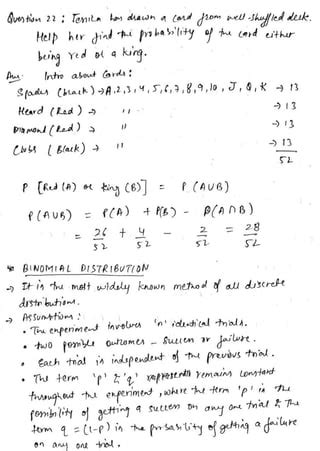 Question 22 : Tensika has drawn a card from well-shuffled deck.
Help her find the probability of the card either
being red or a king.
Ans. Intro about Cards :
Spades (black) → A,2,3,4,5,6,7,8,9,10, J, Q, K → 13
Heard (Red) → '' → 13
Diamond (Red) → '' → 13
Clubs (Black) → '' → 13
52
P [Red (A) or King (B)] = P (A∪B)
P(A∪B) = P(A) + P(B) - P(A∩B)
= 26/52 + 4/52 - 2/52 = 28/52
BINOMIAL DISTRIBUTION
→ It is the most widely known method of all discrete
distributions.
→ Assumptions :
• The experiment involves 'n' identical trials.
• two possible outcomes - Success or failure.
• Each trial is independent of the previous trial.
• The term 'p' & 'q' represents remains constant
throughout the experiment, where the term 'p' is the
possibility of getting a success on any one trial & the
term q = (1-p) is the probability of getting a failure
on any one trial.